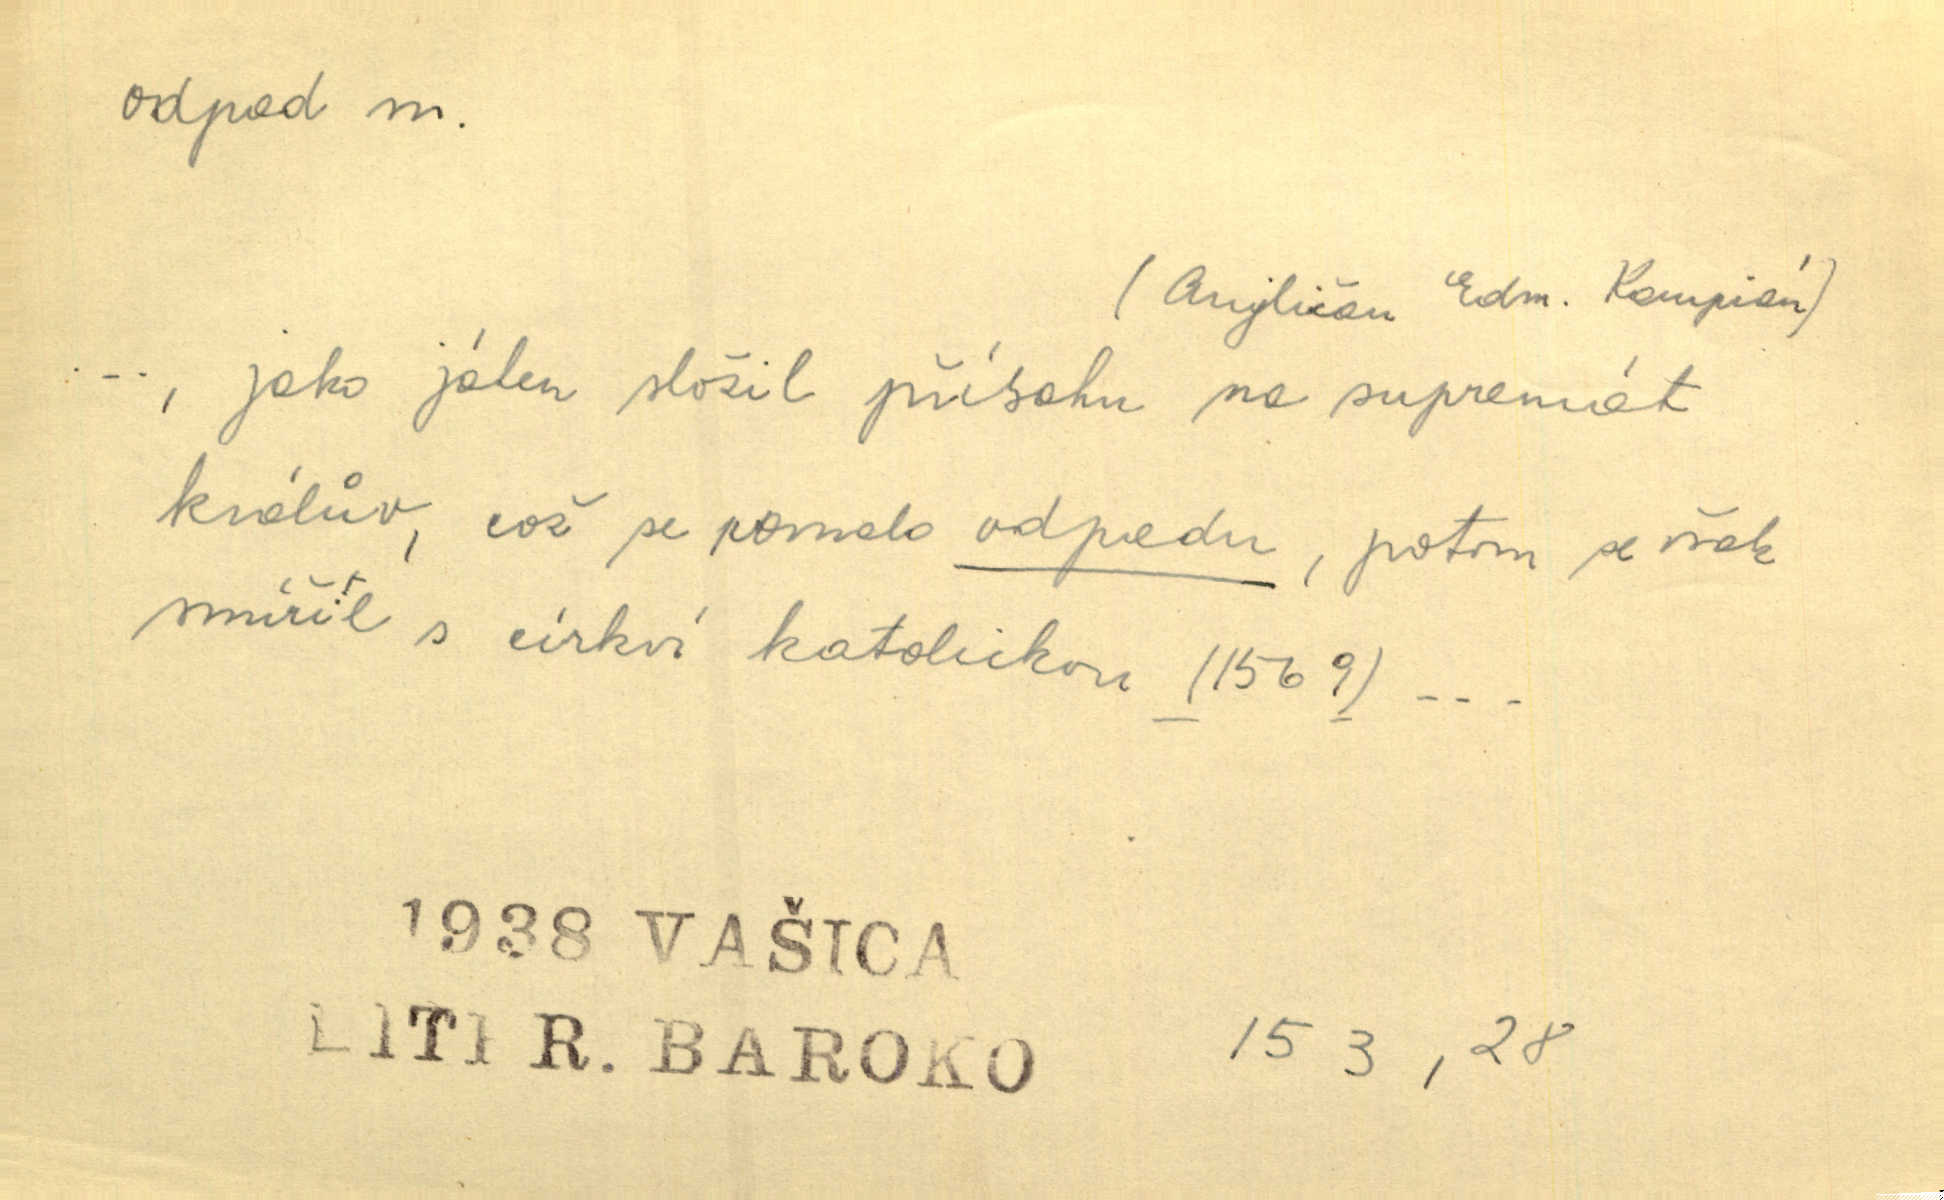 odpad m.
(Angličan Edm. Kampián)
..., jako jálen složil přísahu na supremát
králův, což se rovnalo odpadu, potom se však
smířil s církví katolickou (1569) ...
1938 VAŠICA
LIT R. BAROKO 153, 28